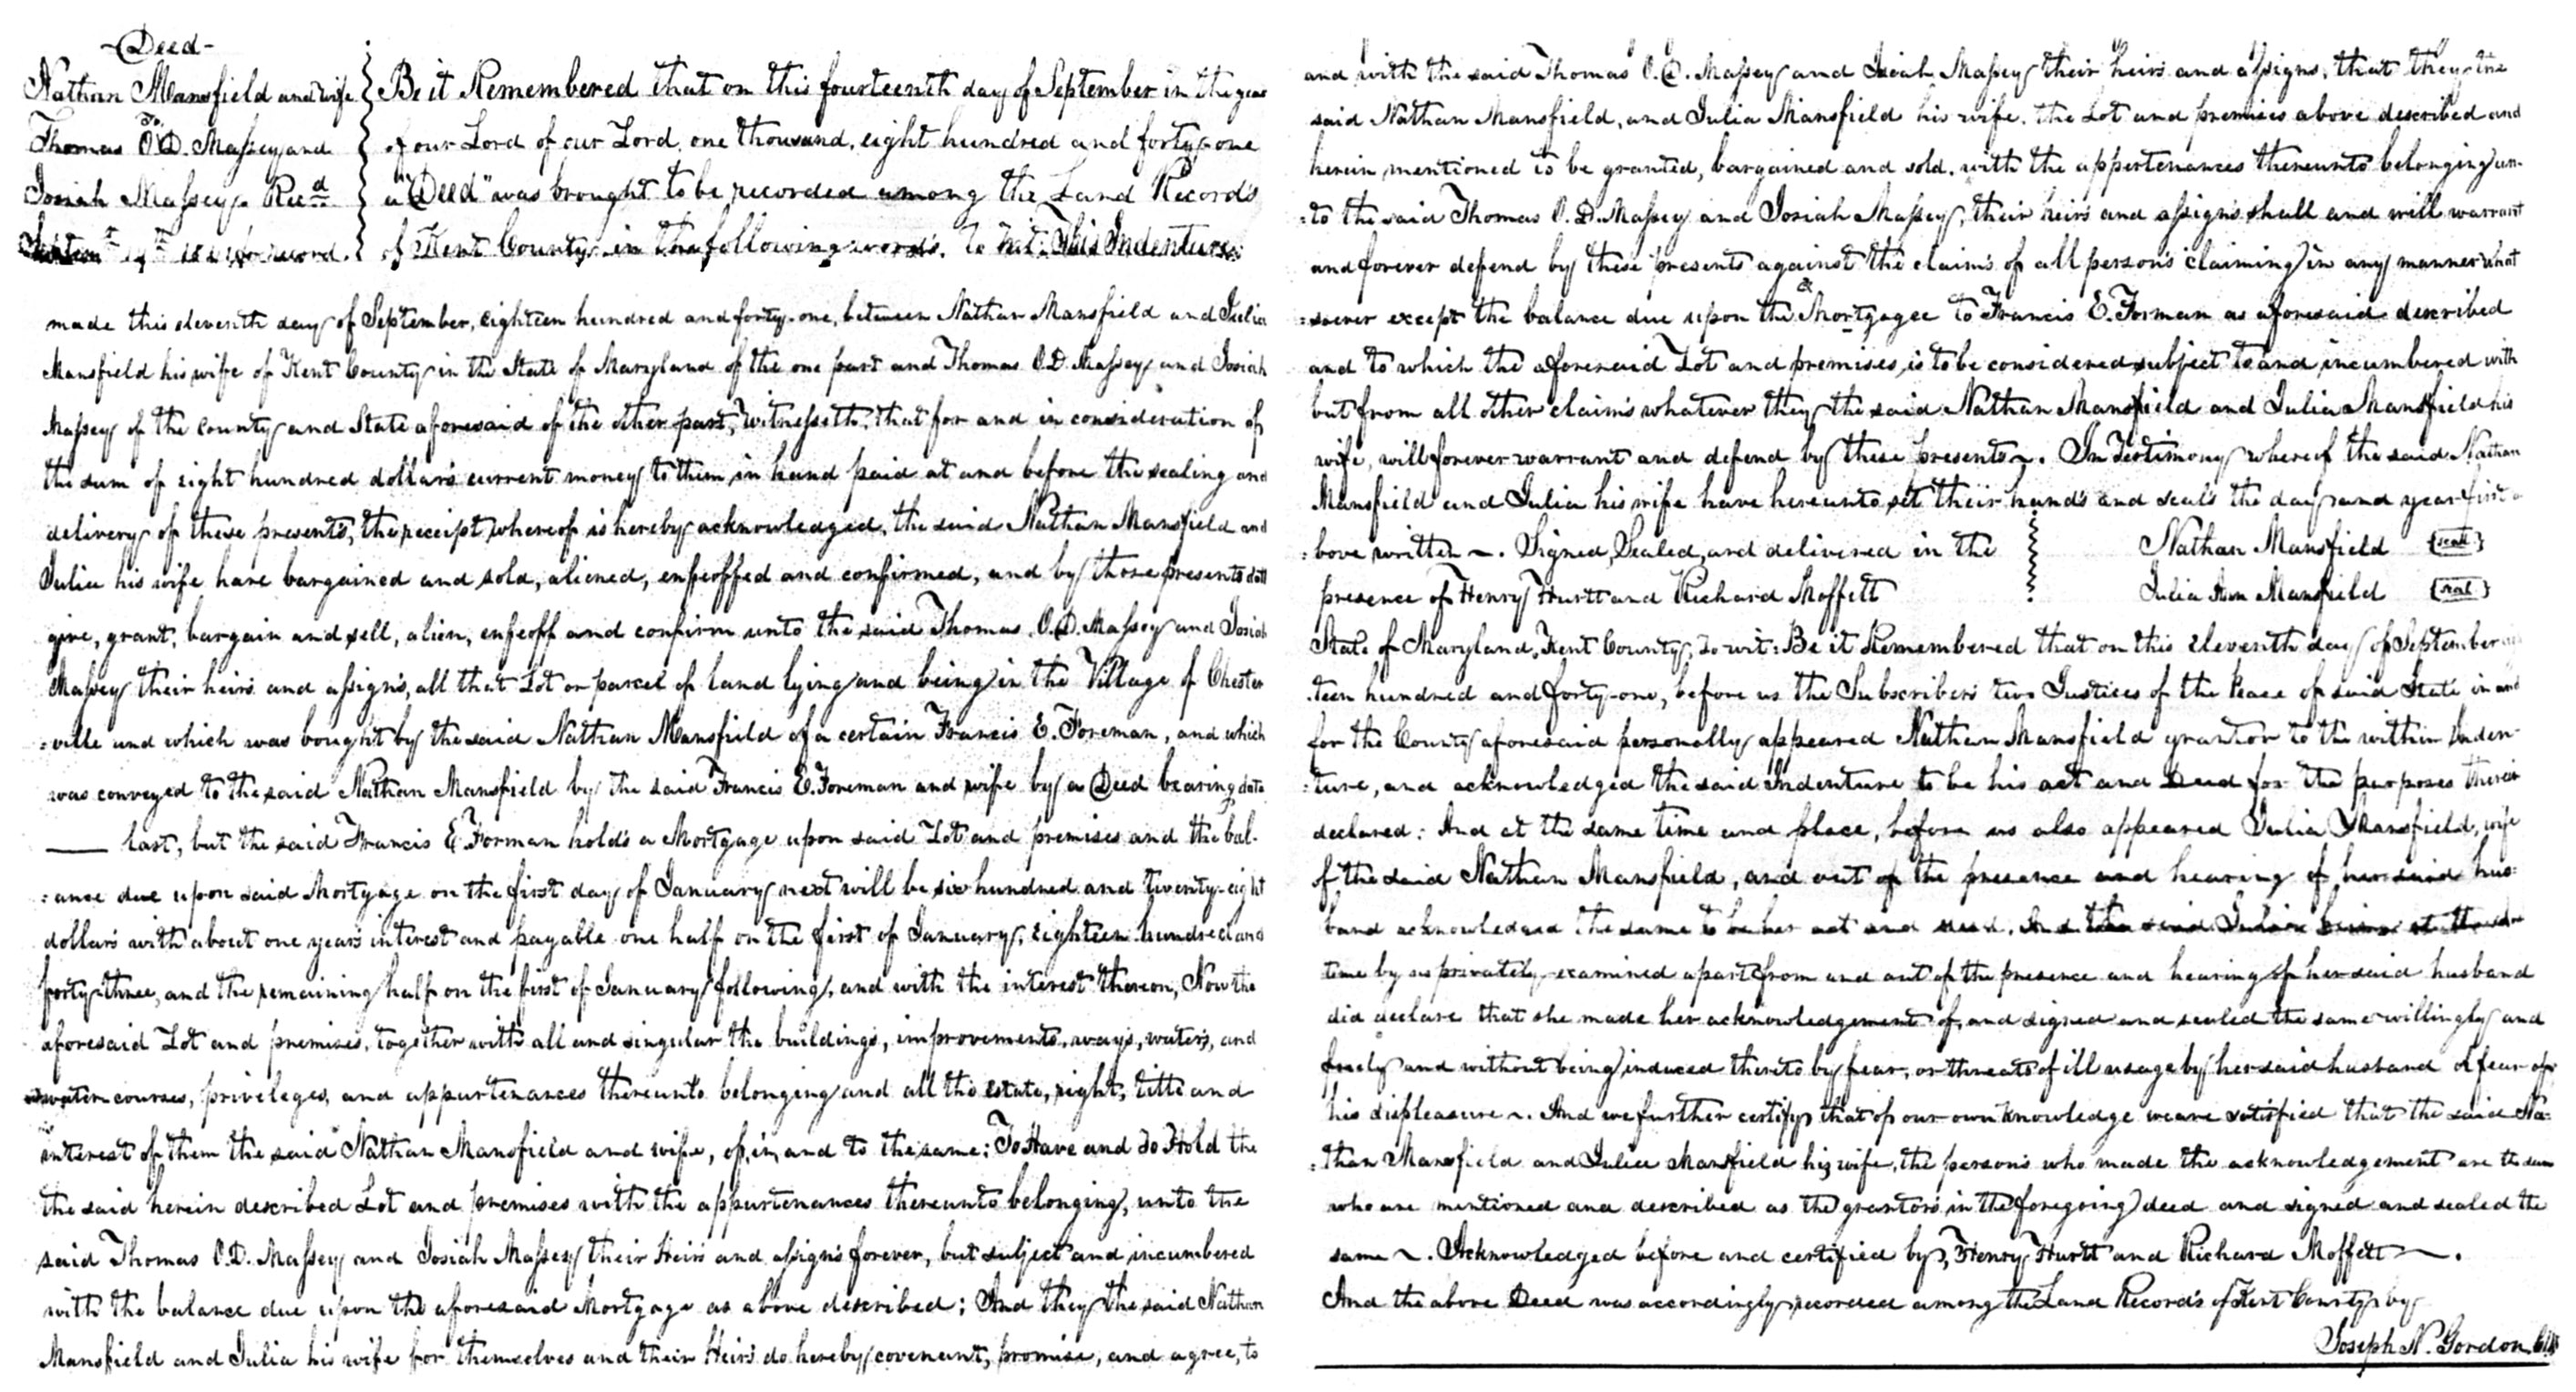 -Deed-
Nathan Mansfield and wife
To
Thomas O.D. Massey and
Josiah Massey. Recd
14th 1841 for record.
Be it Remembered that on this fourteenth day of September in the year
of our Lord of our Lord, one thousand, eight hundred and forty-one
a "Deed" was brought to be recorded among the Land Records
of Kent County in the following words. to wit: This Indenture:
made this eleventh day of September, eighteen hundred and forty-one, between Nathan Mansfield and Julia
Mansfield his wife of Kent County in the State of Maryland of the one part and Thomas O.D. Massey and Josiah
Massey of the County and State aforesaid of the other part, witnesseth, that for and in consideration of
the sum of eight hundred dollars current money to them in hand paid at and before the sealing and
delivery of these presents, the receipt whereof is hereby acknowledged, the said Nathan Mansfield and
Julia his wife have bargained and sold, aliened, enfeoffed and confirmed, and by these presents doth
give, grant, bargain and sell, alien, enfeoff and confirm unto the said Thomas O.D. Massey and Josiah
Massey their heirs and assigns, all that Lot or parcel of land lying and being in the Village of Chester
=ville and which was bought by the said Nathan Mansfield of a certain Francis E. Foreman, and which
was conveyed to the said Nathan Mansfield by the said Francis E. Foreman and wife by a Deed bearing date
—— last, but the said Francis E. Forman holds a Mortgage upon said Lot and premises and the bal-
=ance due upon said Mortgage on the first day of January next will be six hundred and twenty-eight
dollars with about one years interest and payable one half on the first of January, eighteen hundred and
forty-three, and the remaining half on the first of January following, and with the interest thereon, Now the
aforesaid Lot and premises, together with all and singular the buildings, improvements, ways, waters, and
water courses, privileges, and appurtenances thereunto belonging and all the estate, right, title and
interest of them the said Nathan Mansfield and wife, of, in, and to the same; To Have and To Hold the
the said herein described Lot and premises with the appurtenances thereunto belonging, unto the
said Thomas O.D. Massey and Josiah Massey their Heirs and assigns forever, but subject and incumbered
with the balance due upon the aforesaid Mortgage as above described; And they the said Nathan
Mansfield and Julia his wife for themselves and their Heirs do hereby covenant, promise, and agree, to
and with the said Thomas O.D. Massey and Josiah Massey their heirs and assigns, that they the
said Nathan Mansfield, and Julia Mansfield his wife, the Lot and premises above described and
herein mentioned to be granted, bargained and sold, with the appertenances thereunto belonging un-
=to the said Thomas O.D. Massey and Josiah Massey, their heirs and assigns shall and will warrant
and forever defend by these presents against the claims of all persons claiming in any manner what
=soever except the balance due upon the Mortgagee to Francis E. Forman as aforesaid described
and to which the aforesaid Lot and premises, is to be considered subject to and incumbered with
but from all other claims whatever they the said Nathan Mansfield and Julia Mansfield his
wife, will forever warrant and defend by these presents ~. In Testimony whereof the said Nathan
Mansfield and Julia his wife have hereunto set their hands and seals the day and year first a
=bove written ~. Signed, Sealed, and delivered in the
presence of Henry Hurtt and Richard Moffett
Nathan Mansfield {seal}
Julia Ann Mansfield {seal}
State of Maryland, Kent County, to wit: Be it Remembered that on this eleventh day of September
teen hundred and forty-one, before us the Subscribers two Justices of the Peace of said State in and
for the County aforesaid personally appeared Nathan Mansfield grantor to the within Inden-
=ture, and acknowledged the said Indenture to be his act and Deed for the purposes therein
declared: And at the same time and place, before us also appeared Julia Mansfield, wife
of the said Nathan Mansfield, and out of the presence and hearing of her said hus-
band acknowledged the same to be her act and deed. And the said Julia being at the
time by us privately examined apart from and out of the presence and hearing of her said husband
did declare that she made her acknowledgement of, and signed and sealed the same willingly and
freely and without being induced thereto by fear, or threats of ill usage by her said husband or fear of
his displeasure ~. And we further certify that of our own knowledge we are satisfied that the said Na-
=than Mansfield and Julia Mansfield his wife, the persons who made the acknowledgement are the same
who are mentioned and described as the grantors in the foregoing deed and signed and sealed the
same ~. Acknowledged before and certified by, Henry Hurtt and Richard Moffett ~.
And the above Deed was accordingly recorded among the Land Records of Kent County by
Joseph N. Gordon Clk